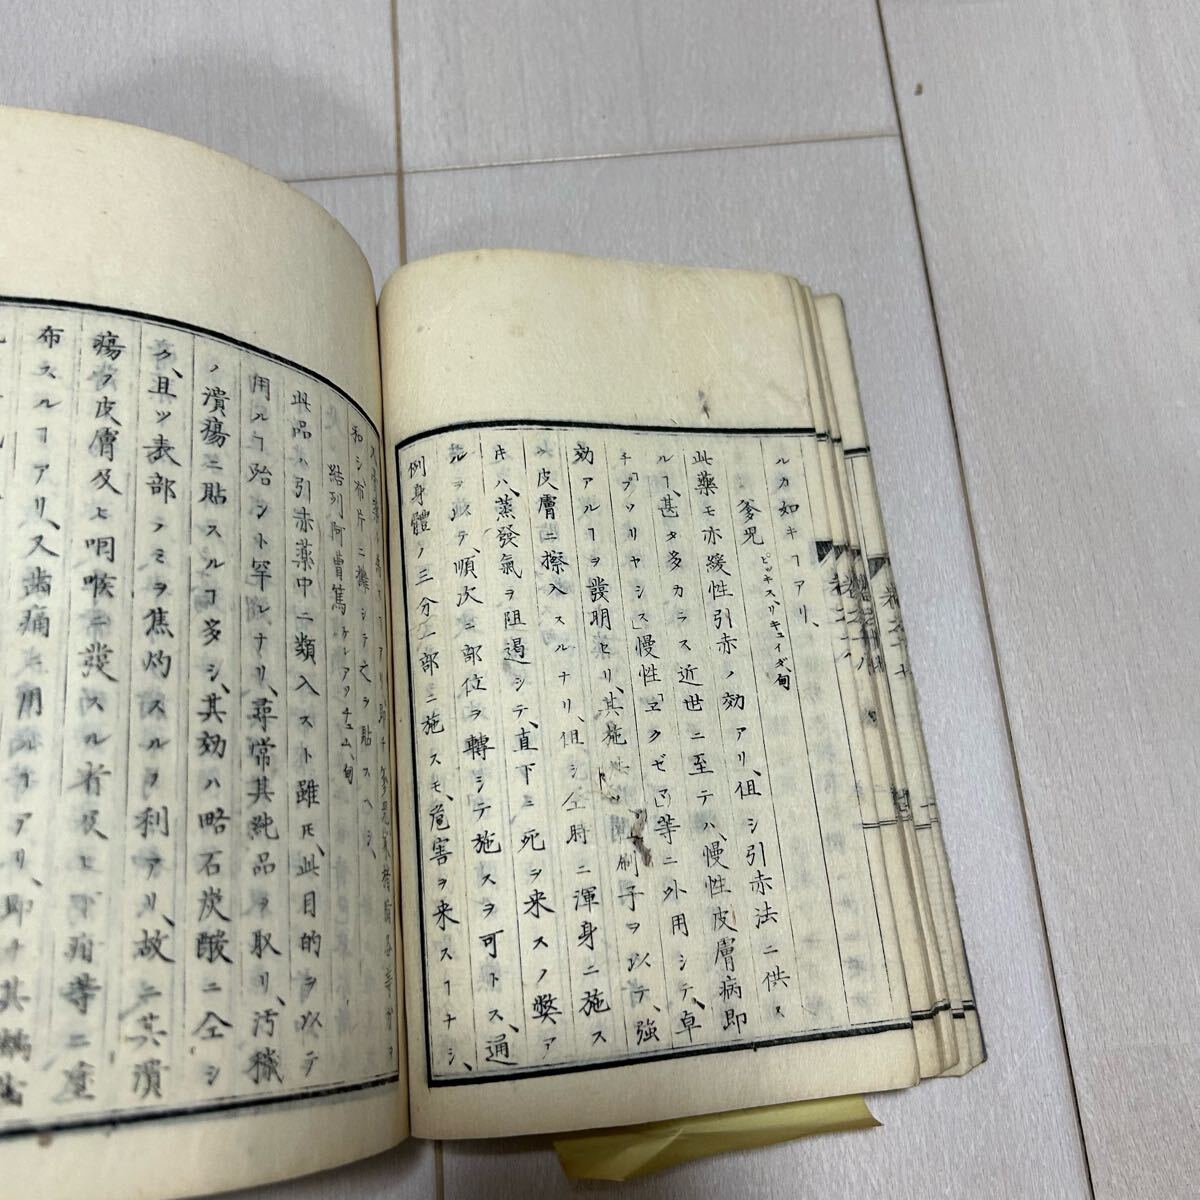 ルカ如キヿアリ、
爹児 ピッキス、リキュイダ、甸
此藥モ亦緩性引赤ノ効アリ、但シ引赤法ニ供ス
ルヿ甚タ多カラス近世ニ至テハ、慢性皮膚病即
チ「プソリヤシス」慢性「ヱクゼマ」等ニ外用シテ、卓
効アルヿヲ發明セリ、其施スニ刷子ヲ以テ、強
ク皮膚ニ擦入スルナリ、但シ仝時ニ渾身ニ施ス
キハ、蒸發氣ヲ阻遏シテ、直下ニ死ヲ来スノ弊ア
ルヲ以テ、順次ニ部位ヲ轉シテ施スヲ可トス、通
例身體ノ三分一部ニ施スモ、危害ヲ来スヿナシ、
和シ、布片ニ攤シテ之ヲ貼スヘシ、
結列阿曹篤 ケレアソチュム、甸
此品ハ引赤薬中ニ類入スト雖𪜈、此目的ヲ以テ
用ルヿ殆ント罕レナリ、尋常其純品ヲ取リ、汚穢
ノ潰瘍ニ貼スルヿ多シ、其効ハ略石炭酸ニ仝シ
ク、且ツ表部ノミヲ焦灼スルヲ利アリ、故ニ其潰
瘍ラ皮膚及ヒ咽喉ニ發スル者及ヒ下疳等ニ塗
布スルヿアリ、又歯痛ニ用ルヿアリ、即チ其